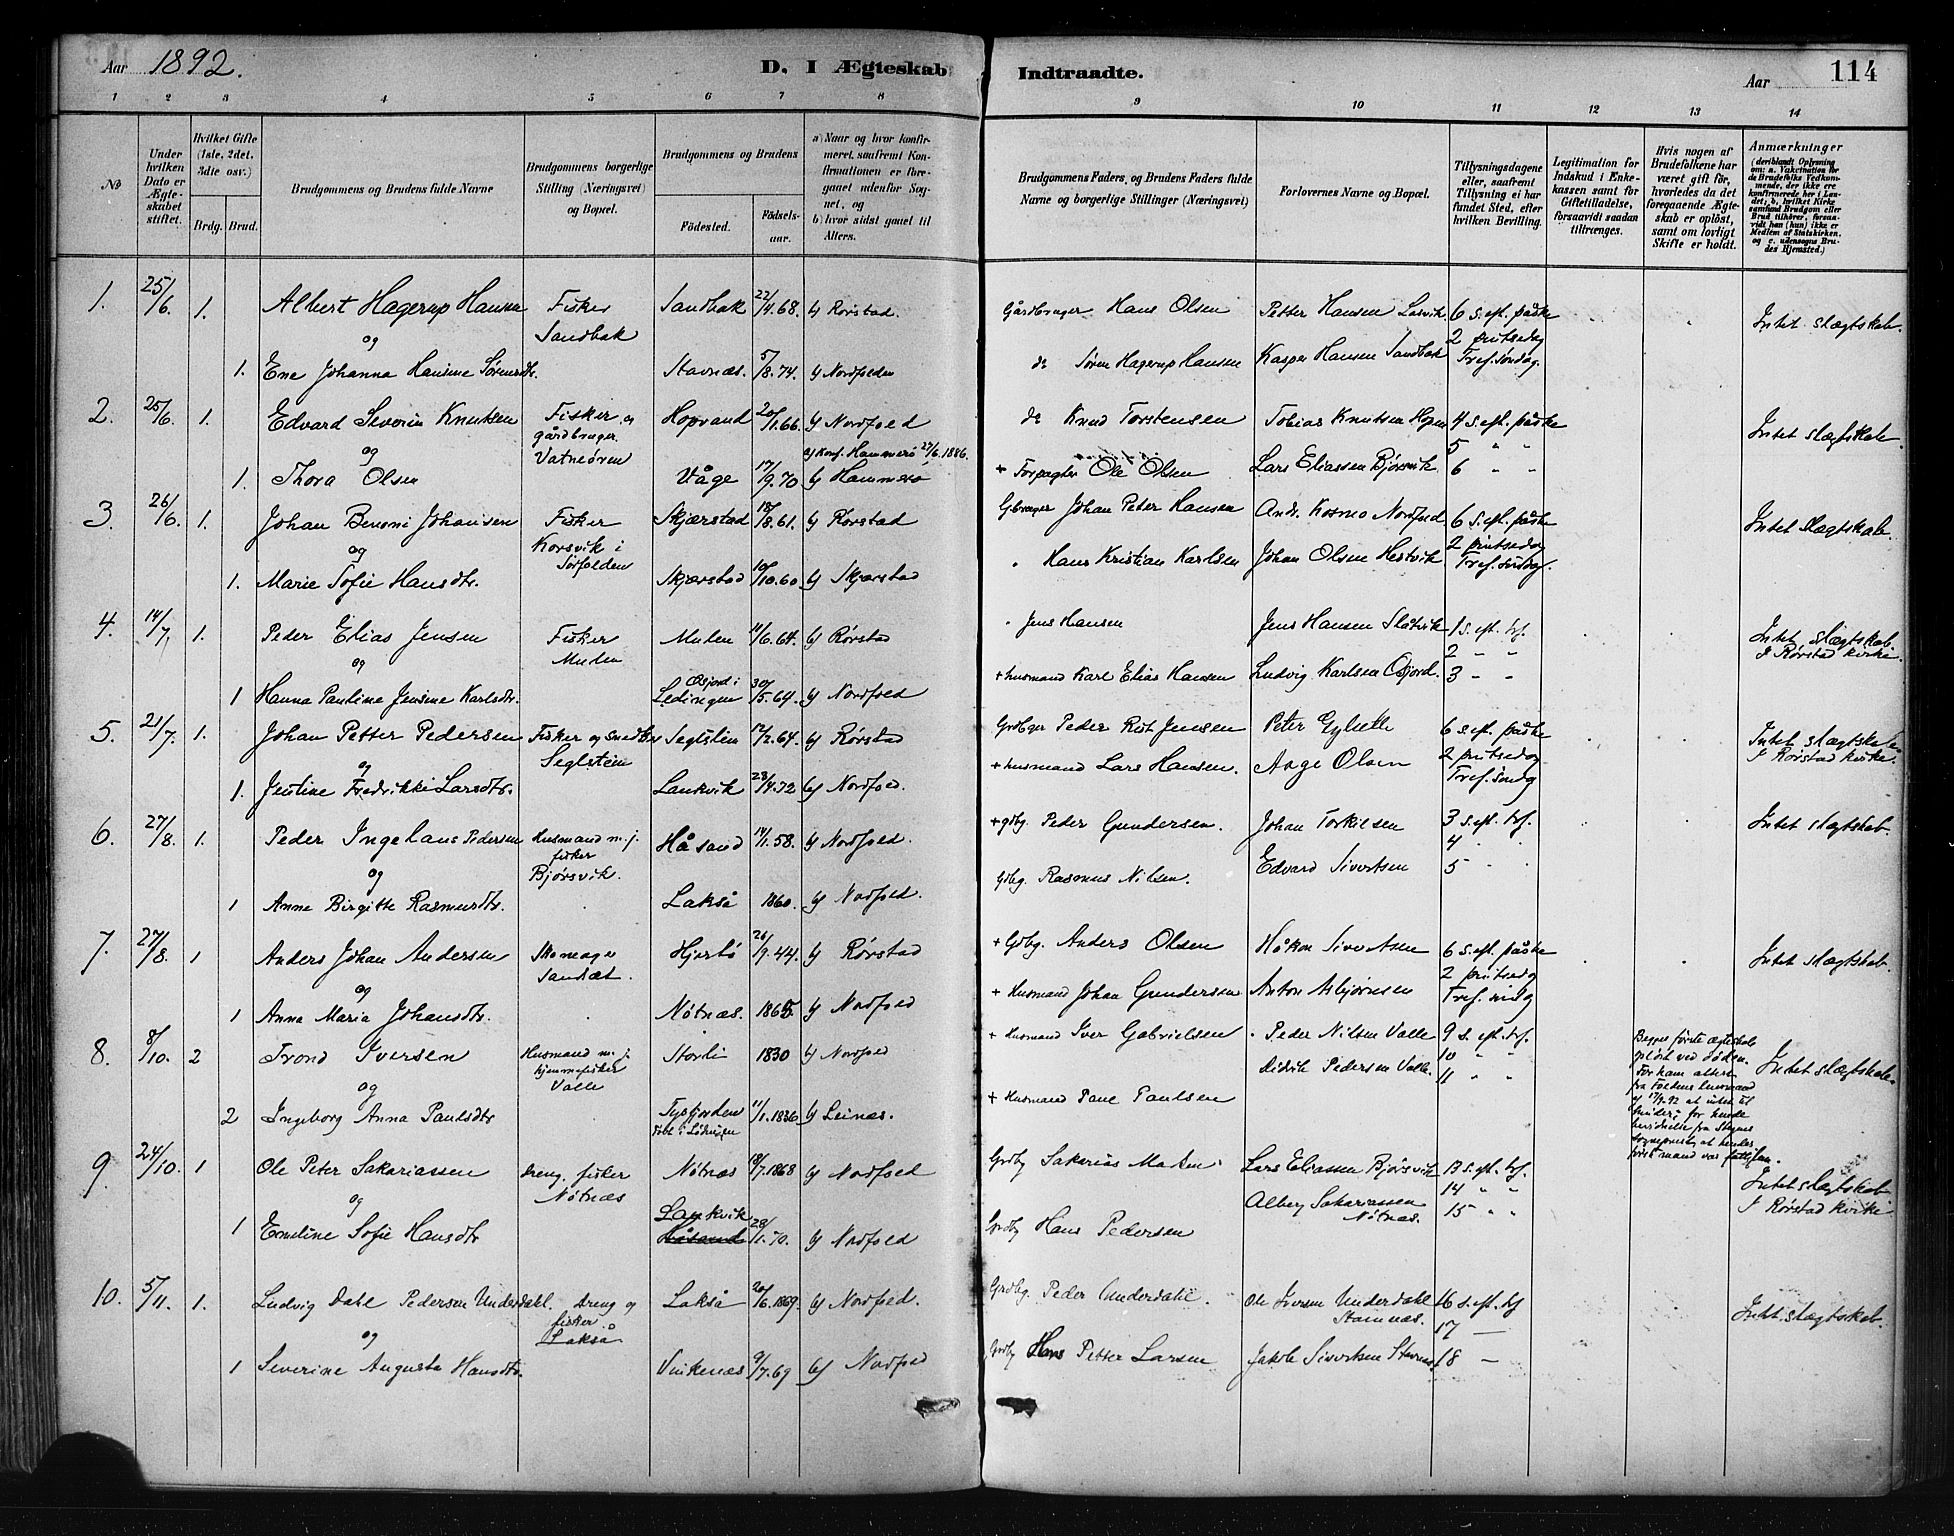 Aar 1892.
D. I Ægteskab Indtraadte.
Aar 114
1 2 3 4 5 6 7 8 9 10 11 12 13 14
№
Under hvilken Dato er Ægteskabet stiftet.
Hvilket Gifte (1ste, 2det, 3die osv.)
Brdg. Brud.
Brudgommens og Brudens fulde Navne
Brudgommens borgerlige Stilling (Næringsvei) og Bopæl.
Brudgommens og Brudens
Fødested. Fødselsaar.
a) Naar og hvor konfirmeret, saafremt Konfirmationen er foregaaet udenfor Sognet, og
b) hvor sidst gaaet til Alters.
Brudgommens Faders, og Brudens Faders fulde Navne og borgerlige Stillinger (Næringsvei)
Forlovernes Navne og Bopæl.
Tillysningsdagene eller, saafremt Tillysning ei har fundet Sted, efter hvilken Bevilling.
Legitimation for Indskud i Enkekassen samt for Giftetilladelse, forsaavidt saadan tiltrænges.
Hvis nogen af Brudefolkene har været gift før, hvorledes da det foregaaende Ægteskab er opløst, samt om lovligt Skifte er holdt.
Anmærkninger
(deriblandt Oplysning om: a. Vaksination for de Brudefolks Vedkommende, der ikke ere konfirmerede her i Landet; b. hvilket Kirkesamfund Brudgom eller Brud tilhører, forsaavidt han (hun) ikke er Medlem af Statskirken, og c. udensogns Brudes Hjemsted.)
1. 25/6 1. Albert Hagerup Hansen Fisker Sandbak 22/4 68. b) Rørstad. Gårdbruger Hans Olsen Petter Hansen Løsvik 6 s. eft. påske Intet slægtskab.
og Sandbak 2 pintsedag
1. Ene Johanna Hansine Sørensdtr. Stavnæs. 5/8. 74. b) Nordfolden do Søren Hagerup Hansen Kasper Hansen Sandbak Tref. søndag.
2. 25/6. 1. Edvard Severin Knutsen Fisker og Hopvand 20/1. 66. b) Nordfold do Knud Torstensen Tobias Knutsen Hopv 4 s. eft. påske Intet slægtskab.
og gårdbruger a) konf. Hammerø 27/6. 1886. 5 " "
Vatneøren
1. Thora Olsen Våge 17/9. 70 b) Hammerø + Forpagter Ole Olsen Lars Eliassen Bjørsvik. 6 " "
3. 26/6. 1. Johan Benoni Johansen Fisker Skjærstad 18/8. 61. b) Rørstad Gbruger Johan Peter Hansen Andr. Kosmo Nordfold 6 s. eft. påske Intet slægtskab.
og Korsvik i 2 pintsedag
Sørfolden
1. Marie Sofie Hansdtr. Skjærstad 10/10. 60 b) Skjærstad " Hans Kristian Karlsen Johan Olsen Hestvik Tref. søndag.
4. 14/7 1. Peder Elias Jensen Fisker Mulen 11/6. 64. b) Rørstad " Jens Hansen Jens Hansen Slåtvik 1 s. eft. trf. Intet slægtskab.
og Mulen 2 " " I Rørstad kirke.
1 Hanna Pauline Jensine Karlsdtr. Ledingen 30/5. 64. b) Nordfold + husmand Karl Elias Hansen Ludvig Karlsen 3 " "
5. 21/7. 1. Johan Petter Pedersen Fisker og snedker Seglstein 12/2. 64. b) Rørstad Grdbgr Peder Rist Jensen Peter Gylseth 6 s. eft. påske Intet slægtskab
og Seglstein 2 pintsedag I Rørstad kirke.
1. Jentine Fredrikke Larsdtr. Lankvik 23/4. 72 b) Nordfold. + husmand Lars Hansen. Aage Olsen Tref. sndg
6. 27/8. 1. Peder Ingelaus Pedersen Husmand m. j. Håsand 14/1. 58. b) Nordfold. + gdbg. Peder Gundersen. Johan Torkilsen 3 s. eft. trf. Intet slægtskab.
og fisker 4 " "
Bjørsvik.
1 Anne Birgitte Rasmusdtr. Lakså 1860. b) Nordfold. Gdbg. Rasmus Nilsen. Edvard Sivertsen 5 " "
7. 27/8. 1 Anders Johan Andersen Skomager Hjertø 26/9. 44. b) Rørstad + Gdbg. Anders Olsen Håkon Sivertsen 6 s. eft. påske Intet slægtskab.
og Sandsæt. 2 pintsedg
1 Anna Maria Johansdtr. Nøtnæs. 1865. b) Nordfold + Husmand Johan Gundersen Anton Asbjørnsen Tref. sndg
8. 8/10. 2 Trond Iversen Husmand m. j. Storli 1830 b) Nordfold + Husmand Iver Gabrielsen Peder Nilsen Valle 9 s. eft. trf. Intet slægtskab.
og hjemmefisker 10 " "
Valle
2 Ingeborg Anna Paulsdtr Tysfjorden 11/1. 1836 b) Leinæs. + Husmand Paul Paulsen Didrik Pedersen Valle. 11 " "
født i Lødingen
Begges første ægteskab opløst ved døden. For ham attest fra Foldens lensmand af 17/9. 92 at intet til hinder; for hende fra Stegens sogneprest at hendes første mand var fattiglem.
9. 24/10. 1 Ole Peter Sakariassen dreng, fisker Nøtnæs 18/7. 1868 b) Nordfold Grdbg Sakarias Lars Eliassen Bjørsvik 13 s. eft. trf. Intet slægtskab
og Nøtnæs Albert Sakariassen Nøtnæs. 14 " " I Rørstad kirke
1 Emeline Sofie Hansdtr Lankvik 28/11. 70. b) Nordfold Grdbg Hans Pedersen 15 " "
Håsand
10. 5/11. 1. Ludvig Dahl Pedersen Underdahl. Dreng og Lakså 20/6. 1869. b) Nordfold. Grdbg. Peder Underdahl. Ole Iversen Underdahl 16 s. eft. trf Intet slægtskab.
og fisker. Stamnæs. 17 —
Lakså
1 Severine Augusta Hansdtr. Vinkenæs 9/7. 69 b) Nordfold Grdbg Hans Petter Larsen Jakob Sivertsen Stavnæs 18 —